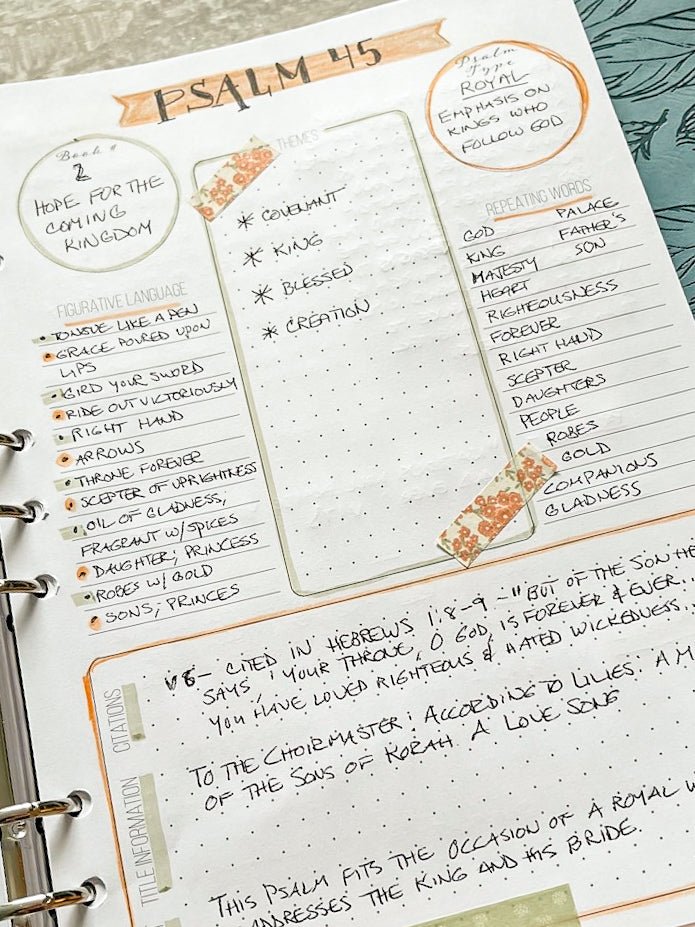 PSALM 45
Book #
2
HOPE FOR THE
COMING
KINGDOM
Psalm
Type
ROYAL
EMPHASIS ON
KINGS WHO
FOLLOW GOD
THEMES
* COVENANT
* KING
* BLESSED
* CREATION
FIGURATIVE LANGUAGE
• TONGUE LIKE A PEN
• GRACE POURED UPON
LIPS
• GIRD YOUR SWORD
• RIDE OUT VICTORIOUSLY
• RIGHT HAND
• ARROWS
• THRONE FOREVER
• SCEPTER OF UPRIGHTNESS
• OIL OF GLADNESS;
FRAGRANT W/SPICES
• DAUGHTER; PRINCESS
• ROBES W/ GOLD
• SONS; PRINCES
REPEATING WORDS
GOD PALACE
KING FATHER'S
MAJESTY SON
HEART
RIGHTEOUSNESS
FOREVER
RIGHT HAND
SCEPTER
DAUGHTERS
PEOPLE
ROBES
GOLD
COMPANIONS
GLADNESS
CITATIONS
V6- CITED IN HEBREWS 1:8-9 - "BUT OF THE SON HE
SAYS, 'YOUR THRONE, O GOD, IS FOREVER & EVER.
YOU HAVE LOVED RIGHTEOUS & HATED WICKEDNESS,
TITLE INFORMATION
TO THE CHOIRMASTER: ACCORDING TO LILIES. A M
OF THE SONS OF KORAH A LOVE SONG
THIS PSALM FITS THE OCCASION OF A ROYAL W
ADDRESSES THE KING AND HIS BRIDE.